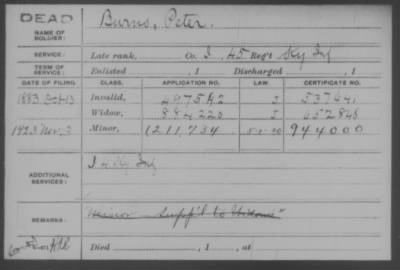 DEAD
NAME OF SOLDIER: Burns, Peter.
SERVICE: Late rank, Co. I, 45 Reg't Ky Inf
TERM OF SERVICE: Enlisted , 1 Discharged , 1
DATE OF FILING. CLASS. APPLICATION NO. LAW. CERTIFICATE NO.
1883 Invalid, 497542 J 537441
Widow, 884220 J 652848
1923 Nov. 3 Minor, 1211,734 944000
ADDITIONAL SERVICES: Inf
REMARKS: Minor Suppl to Widows
Died , 1 , at